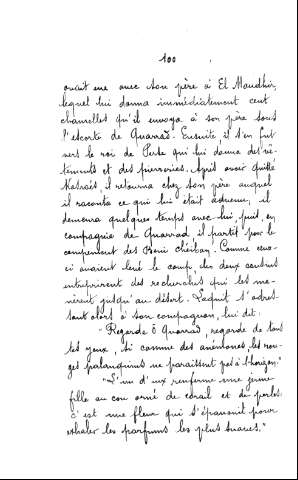 100
avait eue avec son père à El Moundhir,
lequel lui donna immédiatement cent
chamelles qu'il envoya à son père sous
l'escorte de Quarrad. Ensuite il s'en fut
vers le roi de Perse qui lui donna des vê-
tements et des pierreries. Après avoir quitté
il retourna chez son père auquel
il raconta ce qui lui était advenu, il
demeura quelques temps avec lui, puis, en
compagnie de Quarrad il partit pour le
campement des Beni Cheïban. Comme ceux-
ci avaient levé le camp, les deux
entreprirent des recherches qui les me-
nèrent jusqu'au désert. Laquit s'adres-
sant alors à son compagnon, lui dit :
"Regarde ô Quarrad, regarde de tous
tes yeux, si comme des anémones, les rou-
ges palanquins ne paraissent pas à l'horizon."
"L'un d'eux renferme une jeune
fille au cou orné de corail et de perles.
c'est une fleur qui s'épanouit pour
exhaler les parfums les plus suaves."